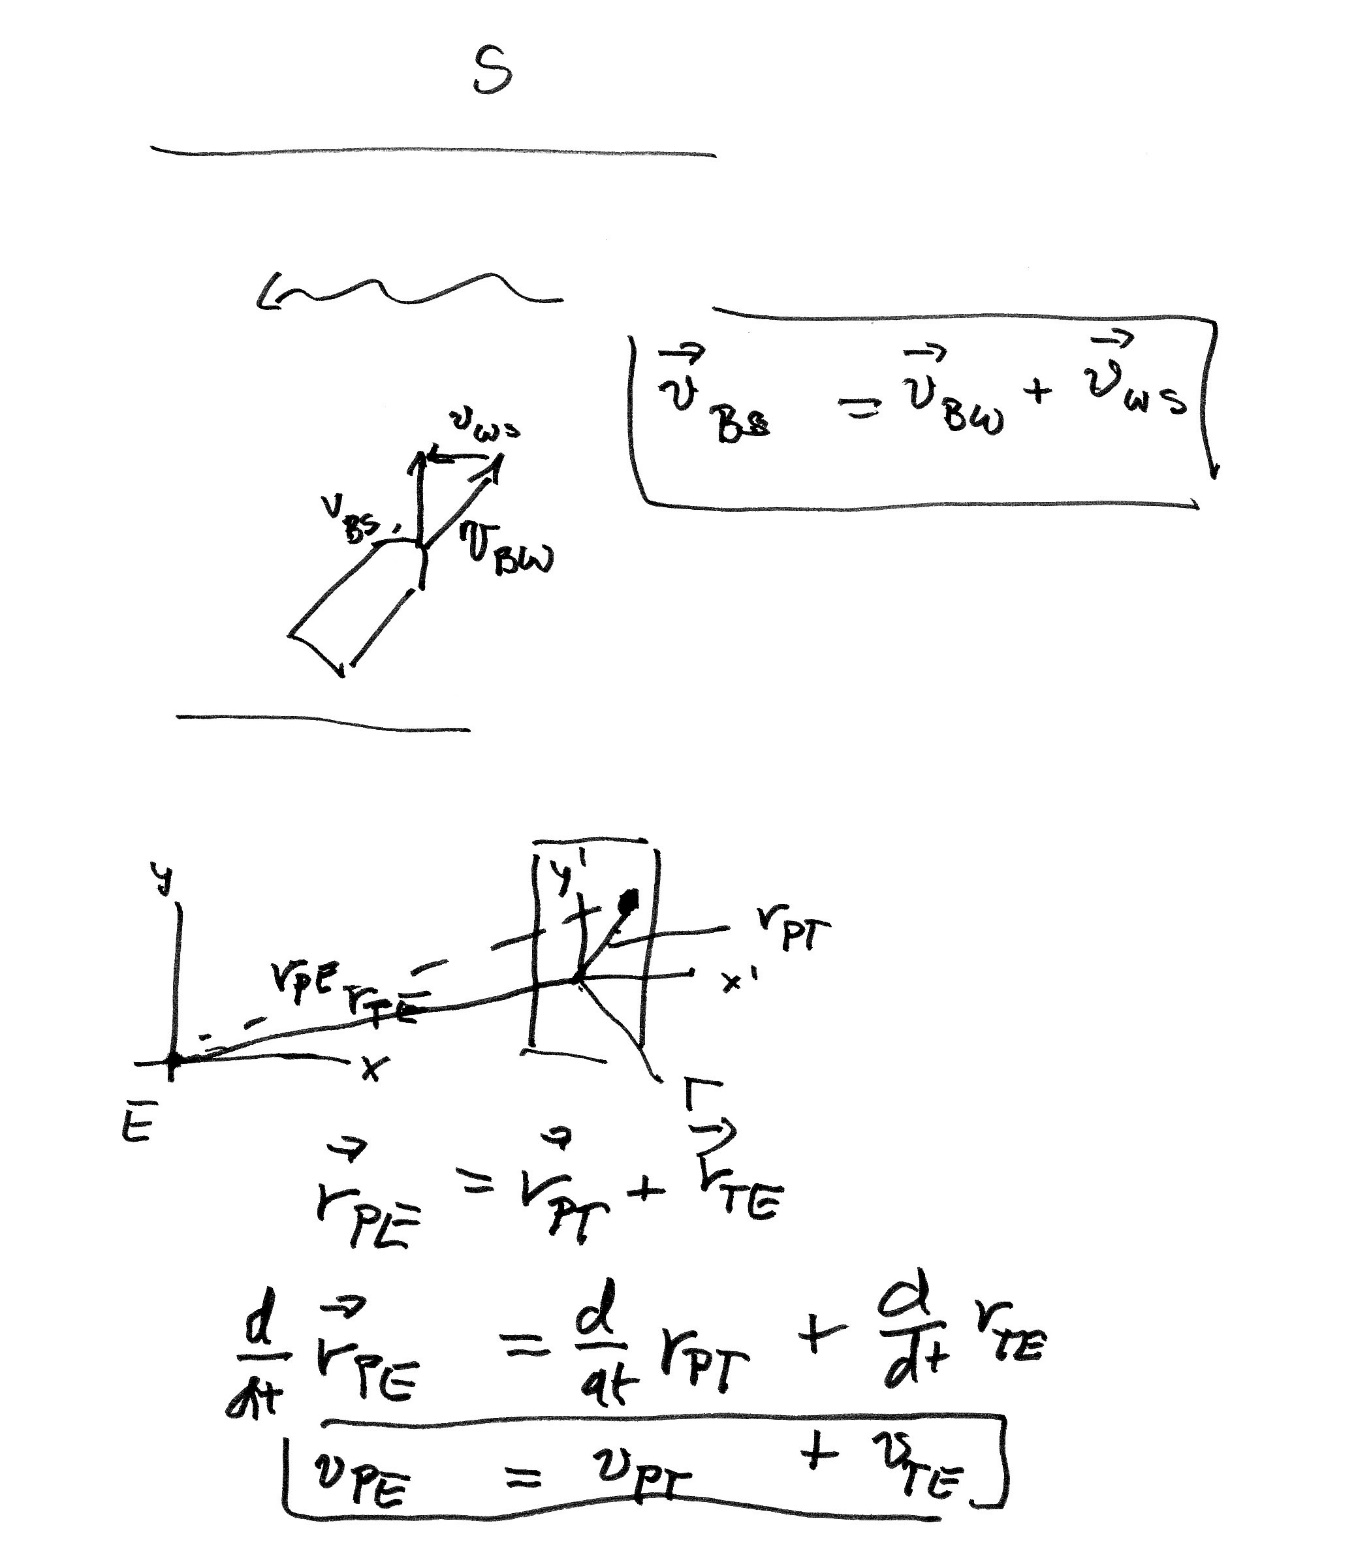 S
v⃗_BS = v⃗_BW + v⃗_WS
v_WS
v_BS
v_BW
y
y'
r_PT
r_PE
r_TE
x'
x
E
T
r⃗_PE = r⃗_PT + r⃗_TE
d/dt r⃗_PE = d/dt r_PT + d/dt r_TE
v_PE = v_PT + v_TE